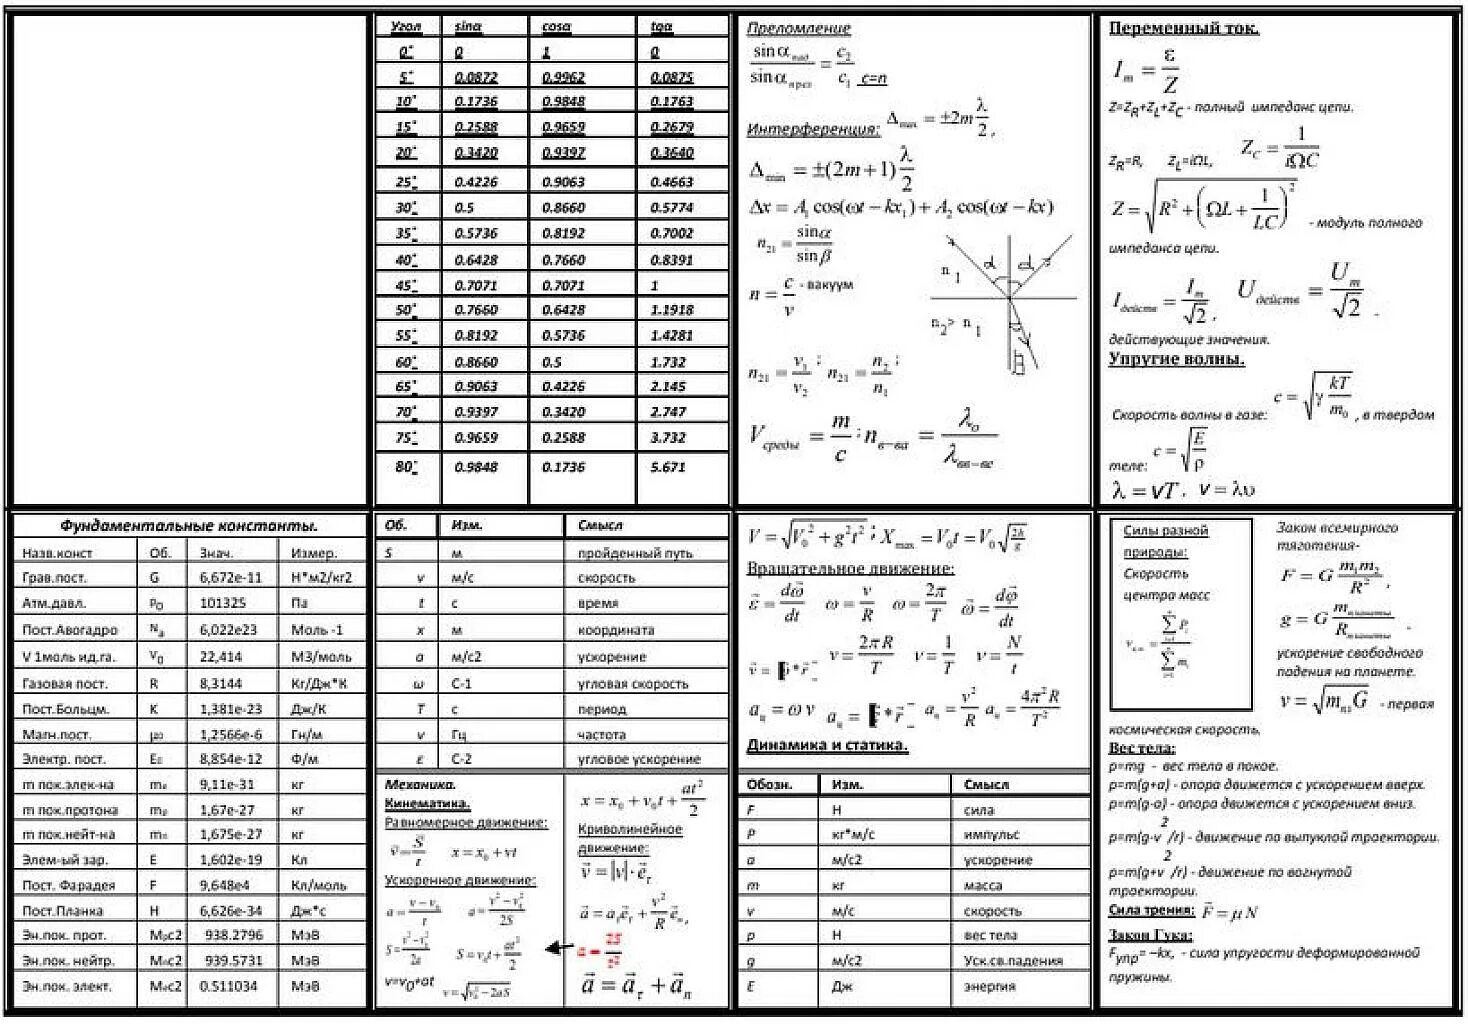 Угол sinα cosα tgα
0° 0 1 0
5° 0.0872 0.9962 0.0875
10° 0.1736 0.9848 0.1763
15° 0.2588 0.9659 0.2679
20° 0.3420 0.9397 0.3640
25° 0.4226 0.9063 0.4663
30° 0.5 0.8660 0.5774
35° 0.5736 0.8192 0.7002
40° 0.6428 0.7660 0.8391
45° 0.7071 0.7071 1
50° 0.7660 0.6428 1.1918
55° 0.8192 0.5736 1.4281
60° 0.8660 0.5 1.732
65° 0.9063 0.4226 2.145
70° 0.9397 0.3420 2.747
75° 0.9659 0.2588 3.732
80° 0.9848 0.1736 5.671
Преломление
sin α пад / sin α прел = c₂ / c₁ c=n
Интерференция: Δmax = ±2m λ/2,
Δmin = ±(2m+1) λ/2
Δx = A₁ cos(ωt − kx₁) + A₂ cos(ωt − kx)
n₂₁ = sin α / sin β
n = c/v - вакуум
n₁
n₂> n₁
n₂₁ = v₁/v₂ ; n₂₁ = n₂/n₁ ;
Vсреды = m/c ; nв−ва = λо / λвв−вс
Переменный ток.
Im = ε/Z
Z=ZR+ZL+ZC - полный импеданс цепи.
ZR=R, ZL=iΩL, ZC = 1/iΩC
Z = √(R² + (ΩL + 1/LC)²) - модуль полного
импеданса цепи.
Iдейств = Im/√2 , Uдейств = Um/√2 .
действующие значения.
Упругие волны.
Скорость волны в газе: c = √(γ kT/m₀) , в твердом
теле: c = √(E/ρ)
λ = vT . v = λυ
Фундаментальные константы.
Назв.конст Об. Знач. Измер.
Грав.пост. G 6,672e-11 Н*м2/кг2
Атм.давл. p0 101325 Па
Пост.Авогадро Na 6,022e23 Моль -1
V 1моль ид.га. V0 22,414 М3/моль
Газовая пост. R 8,3144 Кг/Дж*К
Пост.Больцм. K 1,381e-23 Дж/К
Магн.пост. μ0 1,2566e-6 Гн/м
Электр. пост. E0 8,854e-12 Ф/м
m пок.элек-на me 9,11e-31 кг
m пок.протона mp 1,67e-27 кг
m пок.нейт-на mn 1,675e-27 кг
Элем-ый зар. E 1,602e-19 Кл
Пост. Фарадея F 9,648e4 Кл/моль
Пост.Планка H 6,626e-34 Дж*с
Эн.пок. прот. Mpc2 938.2796 МэВ
Эн.пок. нейтр. Mnc2 939.5731 МэВ
Эн.пок. элект. Mec2 0.511034 МэВ
Об. Изм. Смысл
S м пройденный путь
v м/с скорость
t с время
x м координата
a м/с2 ускорение
ω С-1 угловая скорость
T с период
ν Гц частота
ε С-2 угловое ускорение
Механика.
Кинематика.
Равномерное движение:
v = S/t x = x₀ + vt
Ускоренное движение:
a = (v − v₀)/t a = (v² − v₀²)/2S
S = (v² − v₀²)/2a S = v₀t + at²/2
v=v0+at v = √(v₀² − 2aS)
x = x₀ + v₀t + at²/2
Криволинейное
движение:
v = |v| · eτ
a = aτeτ + v²/R en,
a = aτ + an
V = √(V₀² + g²t²) ; Xmax = V₀t = V₀√(2h/g)
Вращательное движение:
ε = dω/dt ω = v/R ω = 2π/T ω = dφ/dt
v = 2πR/T ν = 1/T ν = N/t
aц = ω v aц = v²/R aц = 4π²R/T²
Динамика и статика.
Обозн. Изм. Смысл
F Н сила
P кг*м/с импульс
a м/с2 ускорение
m кг масса
v м/с скорость
p Н вес тела
g м/с2 Уск.св.падения
E Дж энергия
Силы разной
природы:
Скорость
центра масс
Закон всемирного
тяготения-
F = G m₁m₂/R² ,
g = G mпланеты/Rпланеты .
ускорение свободного
падения на планете.
v = √(mплG) - первая
космическая скорость.
Вес тела:
p=mg - вес тела в покое.
p=m(g+a) - опора движется с ускорением вверх.
p=m(g-a) - опора движется с ускорением вниз.
p=m(g-v²/r) - движение по выпуклой траектории.
p=m(g+v²/r) - движение по вогнутой
траектории.
Сила трения: F = μN
Закон Гука:
Fупр= –kx, - сила упругости деформированной
пружины.